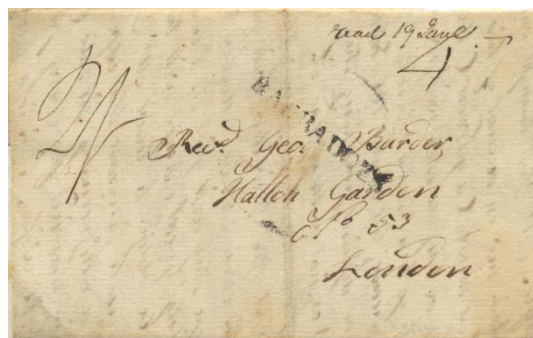 read 19 June
4
BARBADOES
Revd. Geo. Burder
Hatton Garden
No 53
London